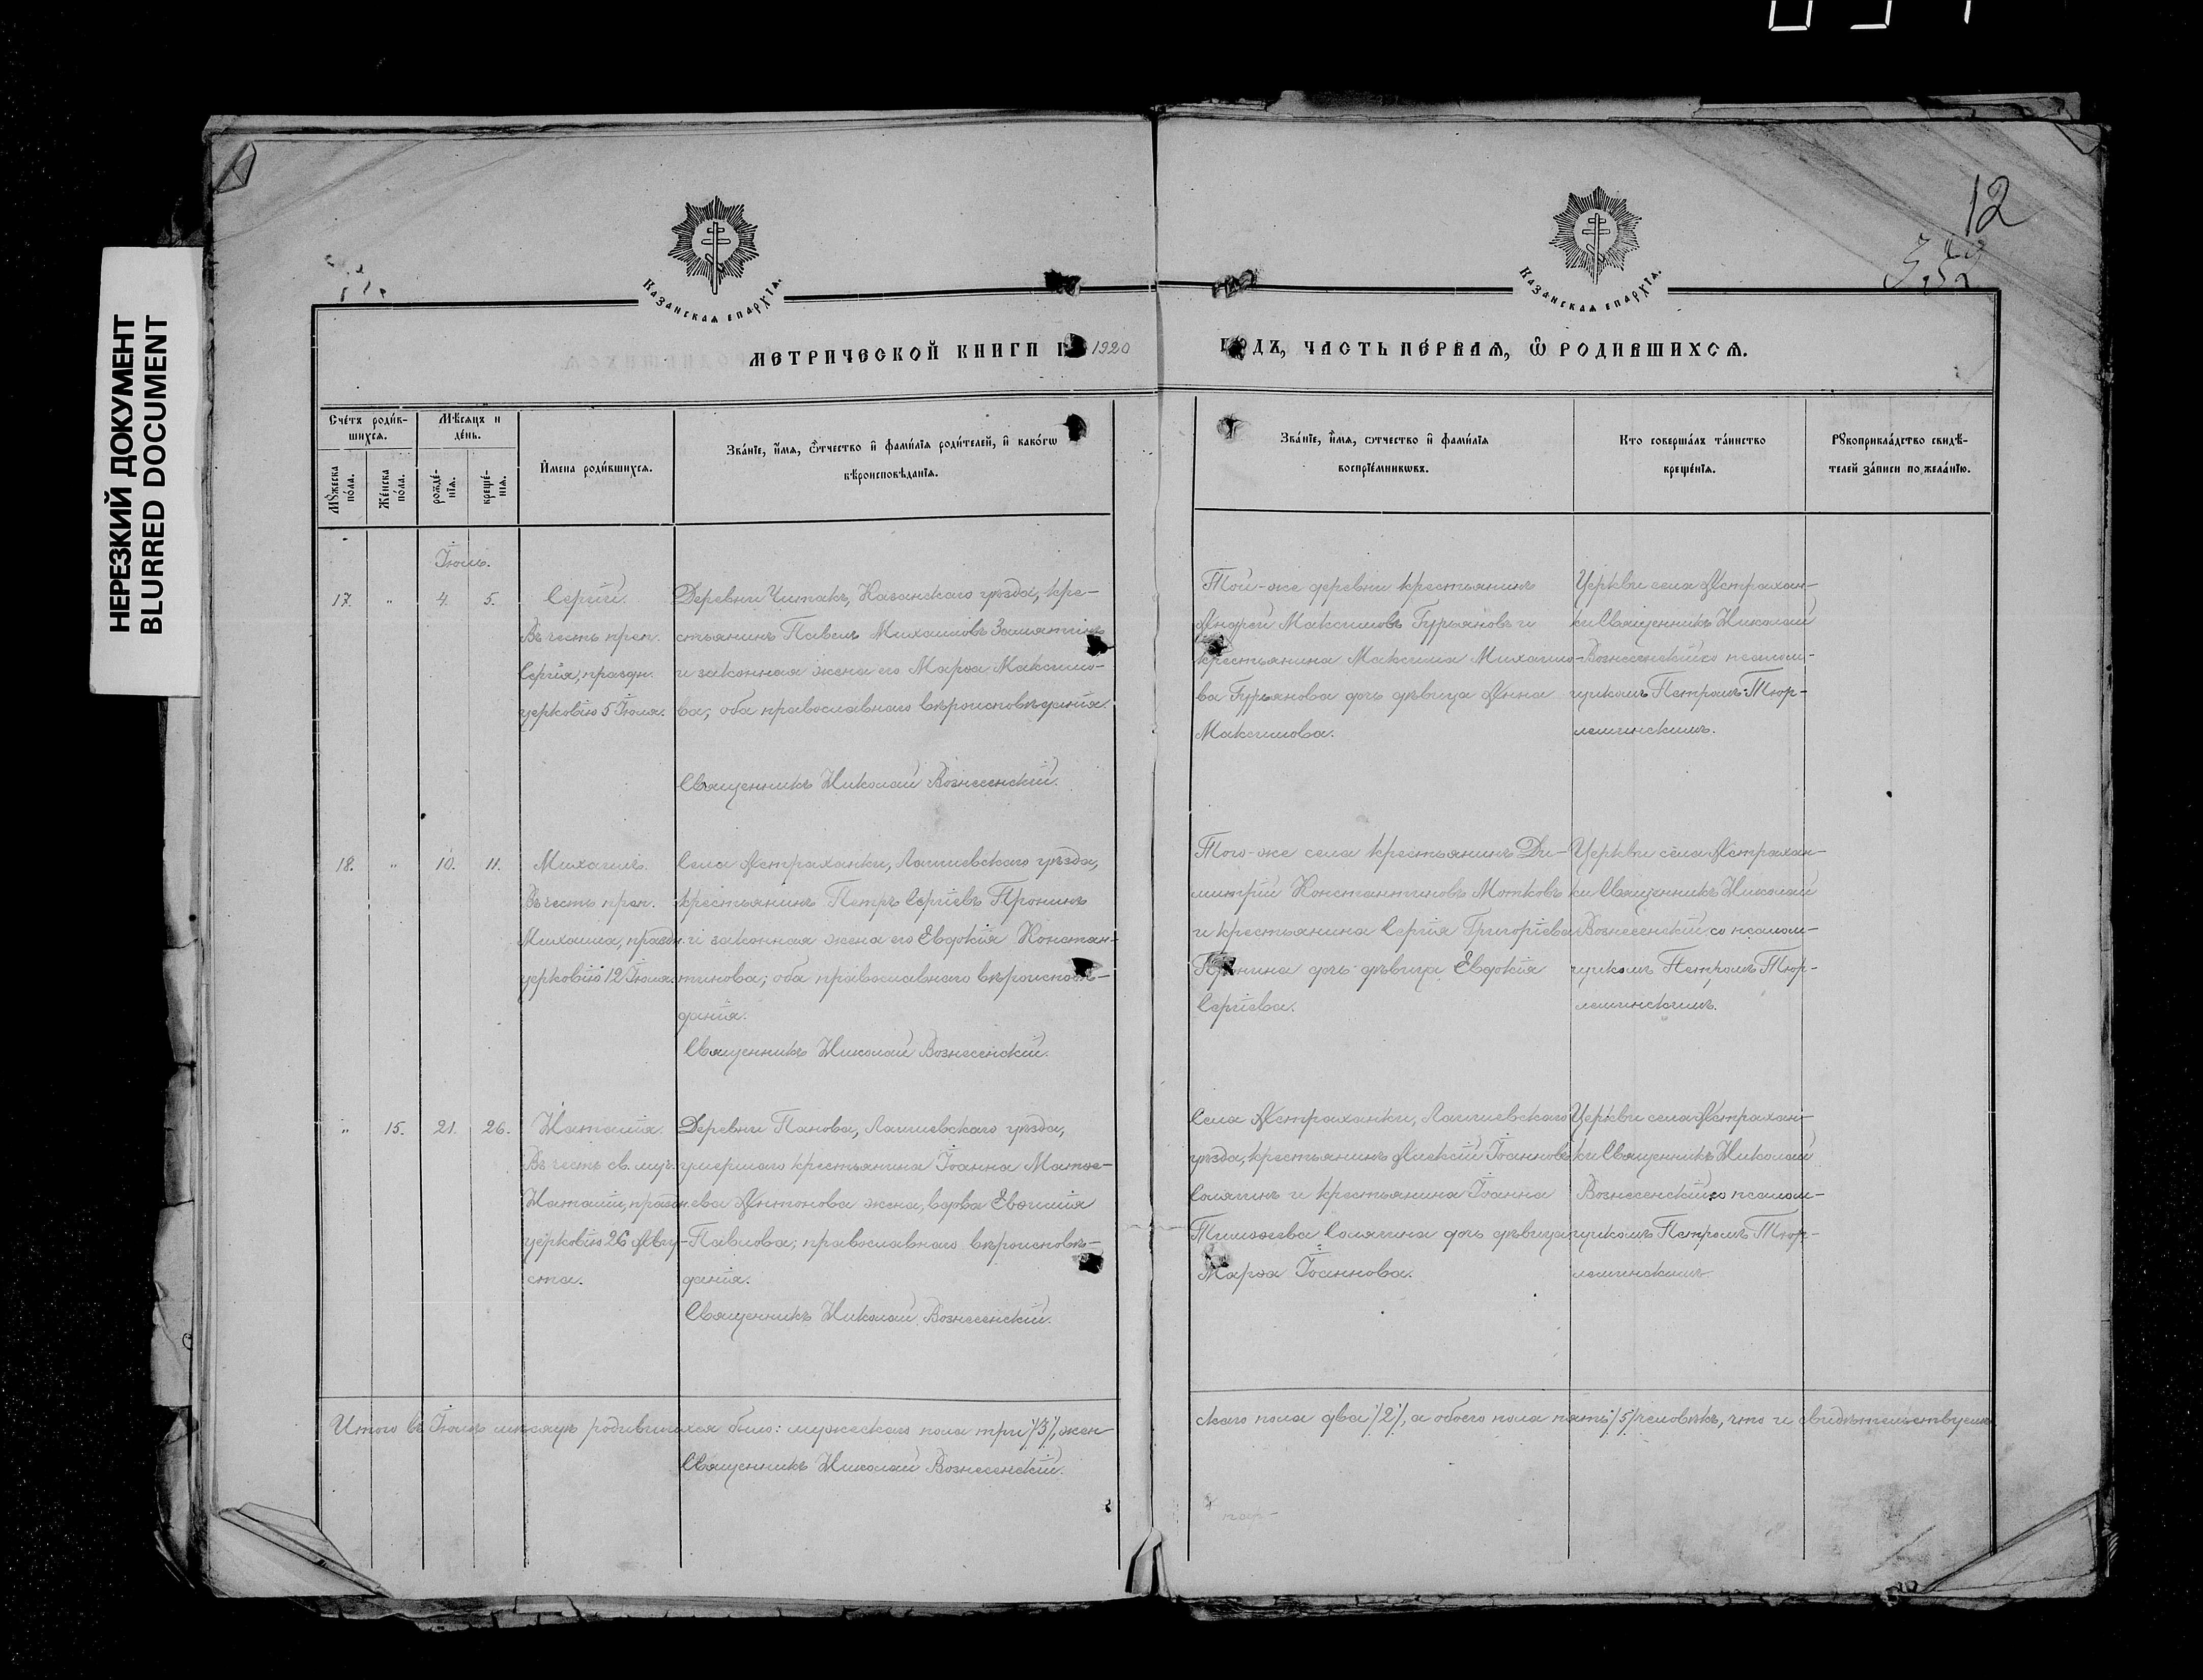 12
НЕРЕЗКИЙ ДОКУМЕНТ
BLURRED DOCUMENT
Казанская епархїя.
Казанская епархїя.
МЕТРИЧЕСКОЙ КНИГИ 1920
ГОДЪ, ЧАСТЬ ПЕРВАЯ, Ѡ РОДИВШИХСЯ.
Счетъ родив-
шихся.
Мѣсяцъ и
день.
Мужеска
пола.
Женска
пола.
рожде-
нїя.
креще-
нїя.
Имена родившихся.
Званїе, имя, ѿчество и фамилїя родителей, и какогѡ
вѣроисповѣданїя.
Званїе, имя, ѿчество и фамилїя
воспрїемникѡвъ.
Кто совершалъ таинство
крещенїя.
Рукоприкладство свидѣ-
телей записи по желанїю.
Іюль.
17. " 4. 5.
Сергій.
Въ честь преп.
Сергія, праздн.
церковію 5 Іюля.
Деревни Читакъ, Казанскаго уѣзда, кре-
стьянинъ Павелъ Михаиловъ Замятинъ
и законная жена его Марѳа Максимо-
ва; оба православнаго вѣроисповѣданія.
Священникъ Николай Вознесенскій.
Той-же деревни крестьянинъ
Андрей Максимовъ Гурьяновъ и
крестьянина Максима Михаило-
ва Гурьянова дочь дѣвица Анна
Максимова.
Церкви села Астрахан-
ки Священникъ Николай
Вознесенскій со псалом-
щикомъ Петромъ Тюр-
леминскимъ.
18. " 10. 11.
Михаилъ.
Въ честь преп.
Михаила, праздн.
церковію 12 Іюля.
Села Астраханки, Лаишевскаго уѣзда,
крестьянинъ Петръ Сергіевъ Пронинъ
и законная жена его Евдокія Констан-
тинова; оба православнаго вѣроисповѣ-
данія.
Священникъ Николай Вознесенскій.
Того-же села крестьянинъ Ди-
митрій Константиновъ Мотковъ
и крестьянина Сергія Григоріева
Пронина дочь дѣвица Евдокія
Сергіева.
Церкви села Астрахан-
ки Священникъ Николай
Вознесенскій со псалом-
щикомъ Петромъ Тюр-
леминскимъ.
" 15. 21. 26.
Наталія.
Въ честь св. муч.
Наталіи, праздн.
церковію 26 Авгу-
ста.
Деревни Панова, Лаишевскаго уѣзда,
умершаго крестьянина Іоанна Матѳе-
ева Антонова жена, вдова Евѳимія
Павлова; православнаго вѣроисповѣ-
данія.
Священникъ Николай Вознесенскій.
Села Астраханки, Лаишевскаго
уѣзда, крестьянинъ Алексій Іоанновъ
Солягинъ и крестьянина Іоанна
Тимоѳеева Солягина дочь дѣвица
Марѳа Іоаннова.
Церкви села Астрахан-
ки Священникъ Николай
Вознесенскій со псалом-
щикомъ Петромъ Тюр-
леминскимъ.
Итого въ Іюлѣ мѣсяцѣ родившихся было: мужескаго пола три /3/, жен-
скаго пола два /2/, а обоего пола пять /5/ человѣкъ, что и свидѣтельствуемъ
Священникъ Николай Вознесенскій.